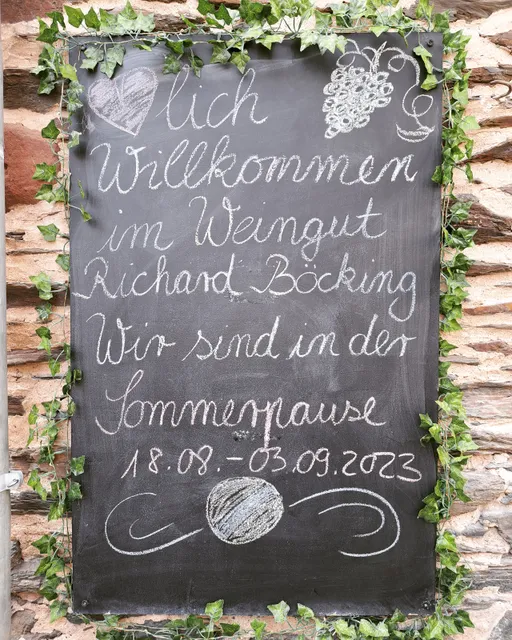 lich
Willkommen
im Weingut
Richard Böcking
Wir sind in der
Sommerpause
18.08.-03.09.2023